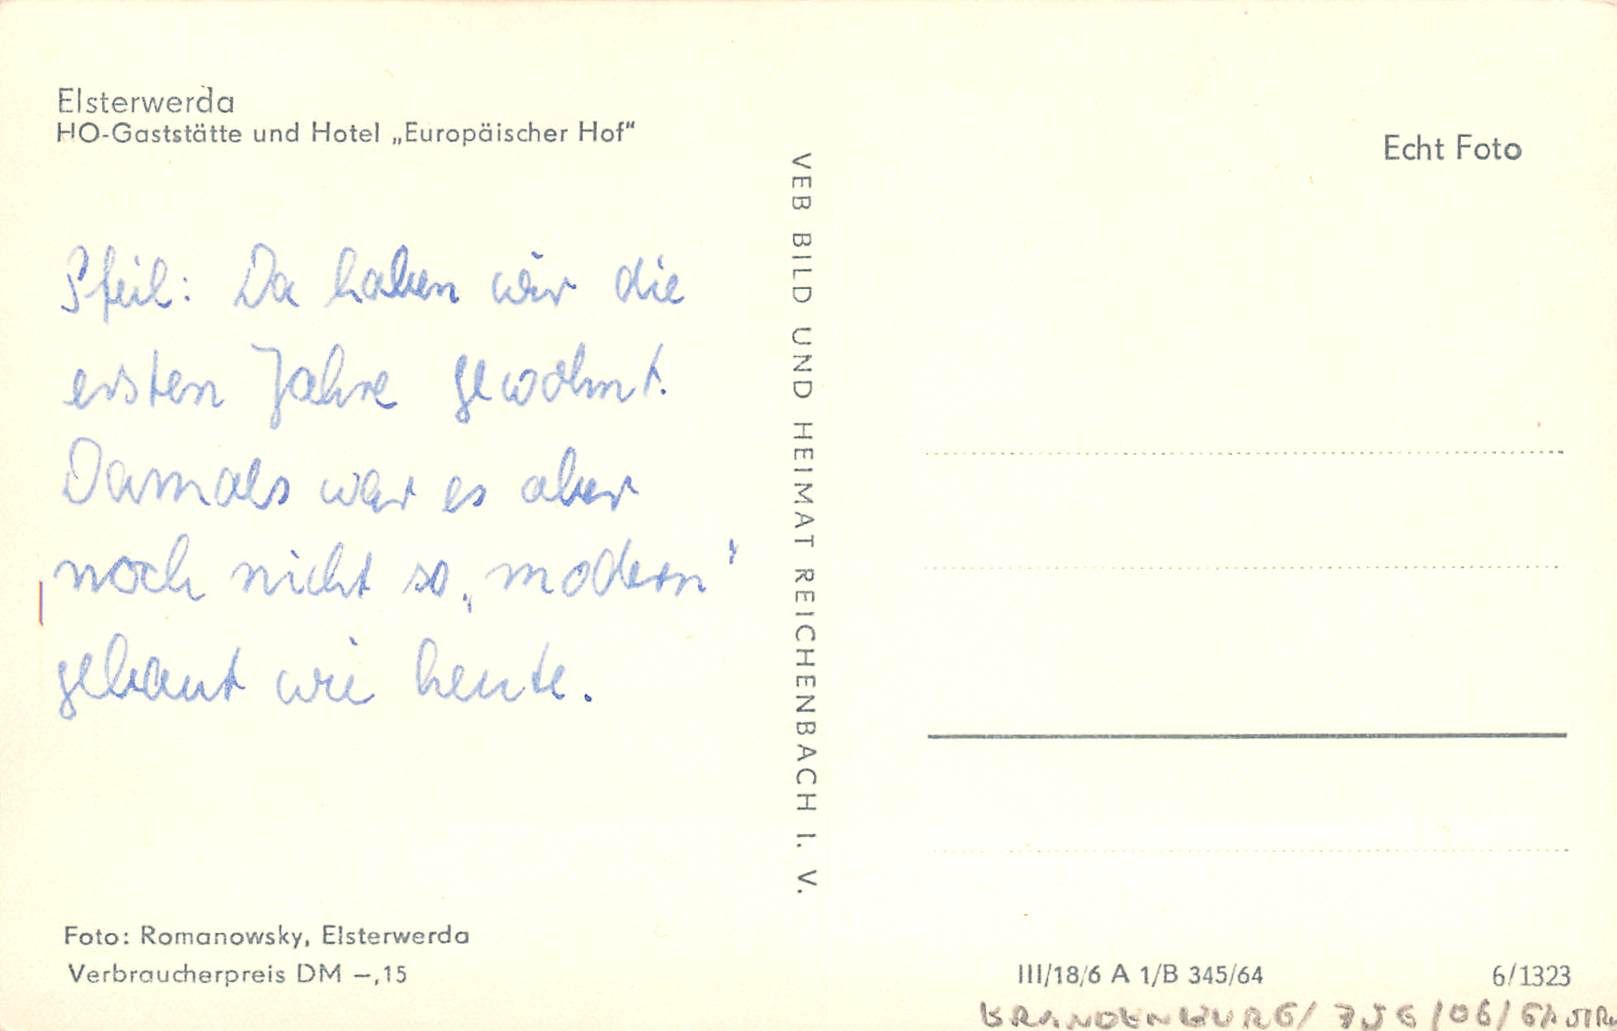 Elsterwerda
HO-Gaststätte und Hotel „Europäischer Hof“
Echt Foto
Pfeil: Da haben wir die
ersten Jahre gewohnt.
Damals war es aber
noch nicht so „modern“
gebaut wie heute.
VEB BILD UND HEIMAT REICHENBACH I. V.
Foto: Romanowsky, Elsterwerda
Verbraucherpreis DM –,15
III/18/6 A 1/B 345/64
6/1323
BRANDENBURG/